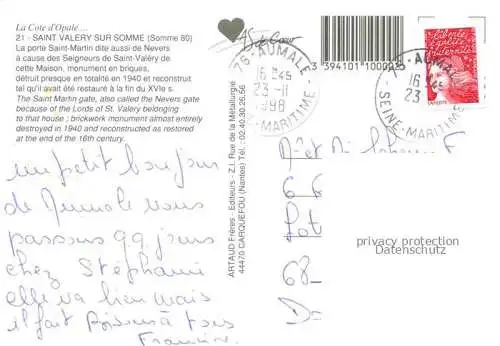 La Cote d'Opale ...
21 - SAINT VALERY SUR SOMME (Somme 80)
La porte Saint-Martin dite aussi de Nevers
à cause des Seigneurs de Saint-Valéry de
cette Maison, monument en briques,
détruit presque en totalité en 1940 et reconstruit
tel qu'il avait été restauré à la fin du XVIe s.
The Saint Martin gate, also called the Nevers gate
because of the Lords of St. Valery belonging
to that house ; brickwork monument almost entirely
destroyed in 1940 and reconstructed as restored
at the end of the 16th century.
un petit bonjour
de Aumale nous
passons qq jours
chez Stéphanie
elle va bien mais
il fait
à tous
Francine
ARTAUD Frères - Editeurs - Z.I. Rue de la Métallurgie
44470 CARQUEFOU (Nantes) - Tél : 02.40.30.26.56
As de Coeur
3 394101 10002
76-AUMALE
16 H45
23-11
1998
SEINE-MARITIME
liberté
égalité
fraternité
LA POSTE
AUMALE
16
23
SEINE-MARITIME
66
Lot
68
privacy protection
Datenschutz